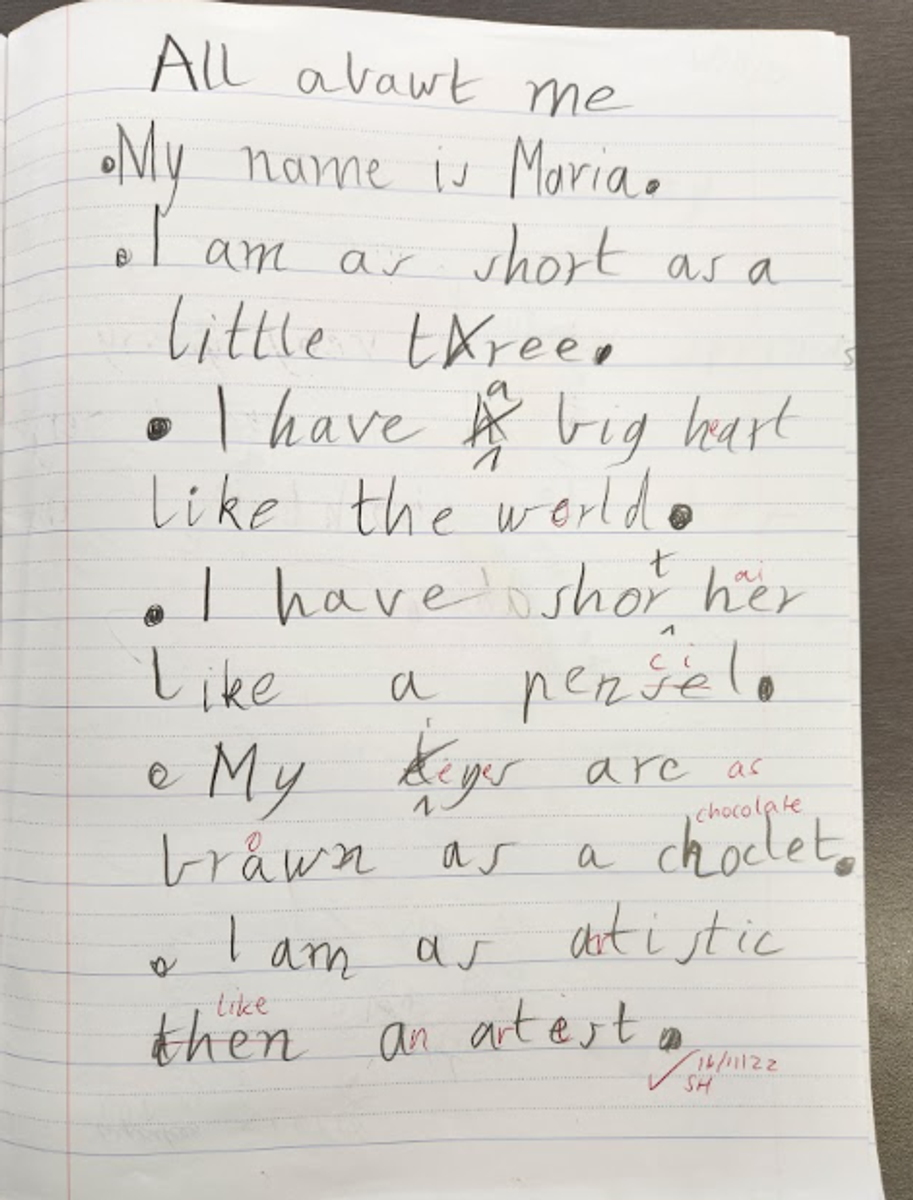 All abawt me
.My name is Maria.
.I am as short as a
little tree.
a
. I have big heart
like the world.
t ai
. I have shor her
c i
like a pensel.
. My eyes are as
chocolate
o
brawn as a choclet.
. I am as artistic
like
then an artist.
✓ 16/11/22
SH